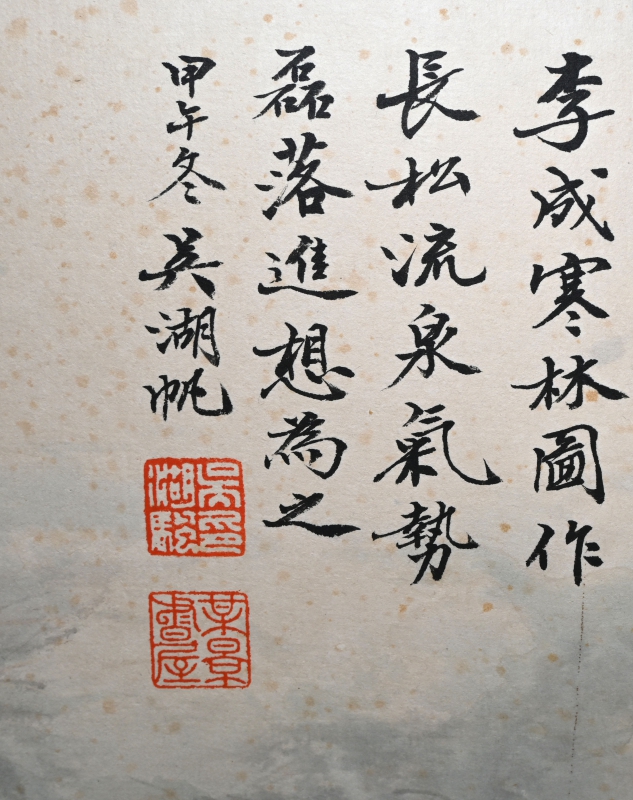 李成寒林圖作
長松流泉氣勢
磊落進想為之
甲午冬吳湖帆
吳湖驍印
某景書屋